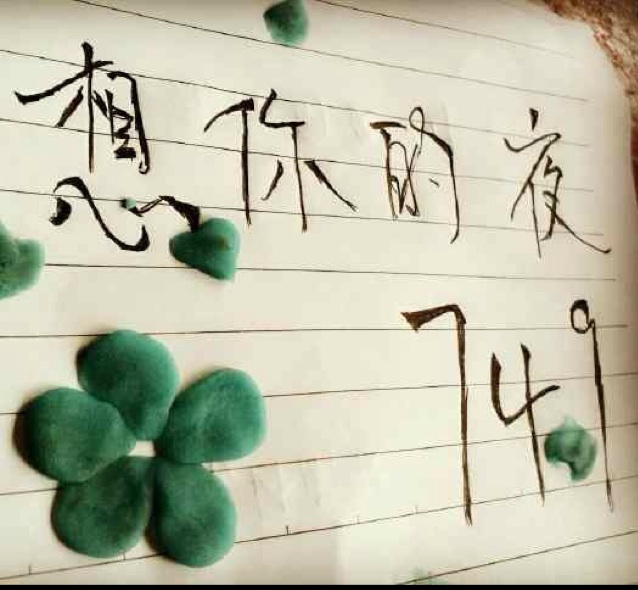 想你的夜
749